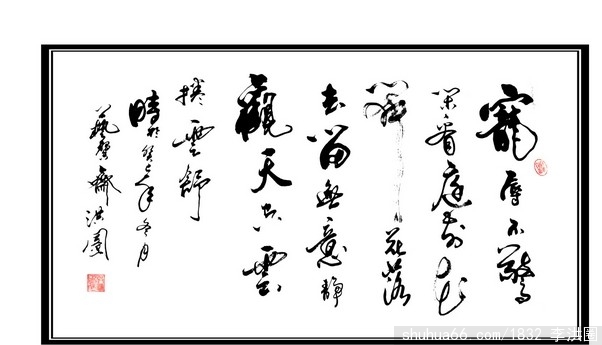 寵辱不驚
閑看庭前花
開花落
去留無意靜
觀天空雲
捲雲舒
時於癸巳年冬月
藝馨齋洪圈
shuhua66.com/1832 李洪圈